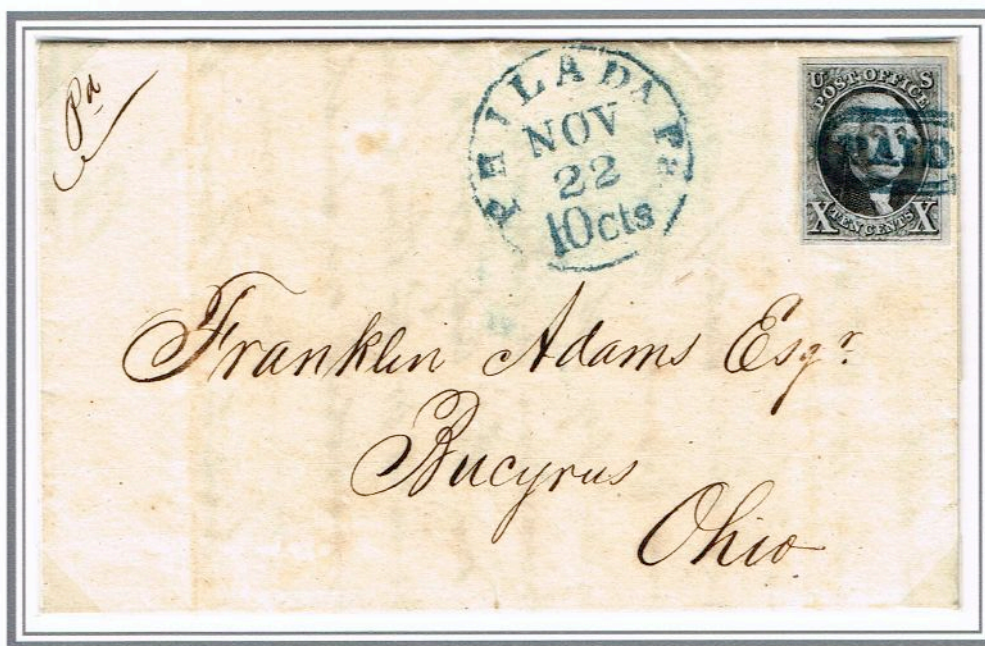 Pd
PHILADA Pa
NOV
22
10cts
U S
POST OFFICE
PAID
X TEN CENTS X
Franklin Adams Esqr.
Bucyrus
Ohio